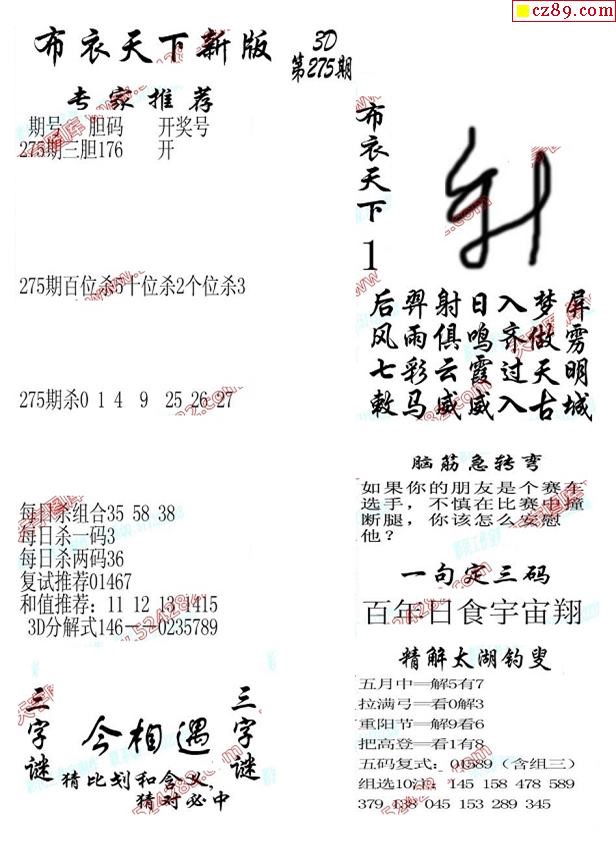 cz89.com
布衣天下新版
3D
第275期
专家推荐
期号 胆码 开奖号
275期三胆176 开
275期百位杀5十位杀2个位杀3
275期杀0 1 4 9 25 26 27
每日杀组合35 58 38
每日杀一码3
每日杀两码36
复试推荐01467
和值推荐：11 12 13 1415
3D分解式146——0235789
三字谜
今相遇
三字谜
猜比划和含义，
猜对必中
布衣天下
1
后羿射日入梦屏
风雨俱鸣齐做雾
七彩云霞过天明
敕马威威入古城
脑筋急转弯
如果你的朋友是个赛车
选手，不慎在比赛中撞
断腿，你该怎么安慰
他？
一句定三码
百年日食宇宙翔
精解太湖钓叟
五月中═解5有7
拉满弓═看0解3
重阳节═解9看6
把高登═看1有8
五码复式：01589（含组三）
组选10注：145 158 478 589
379 138 045 153 289 345